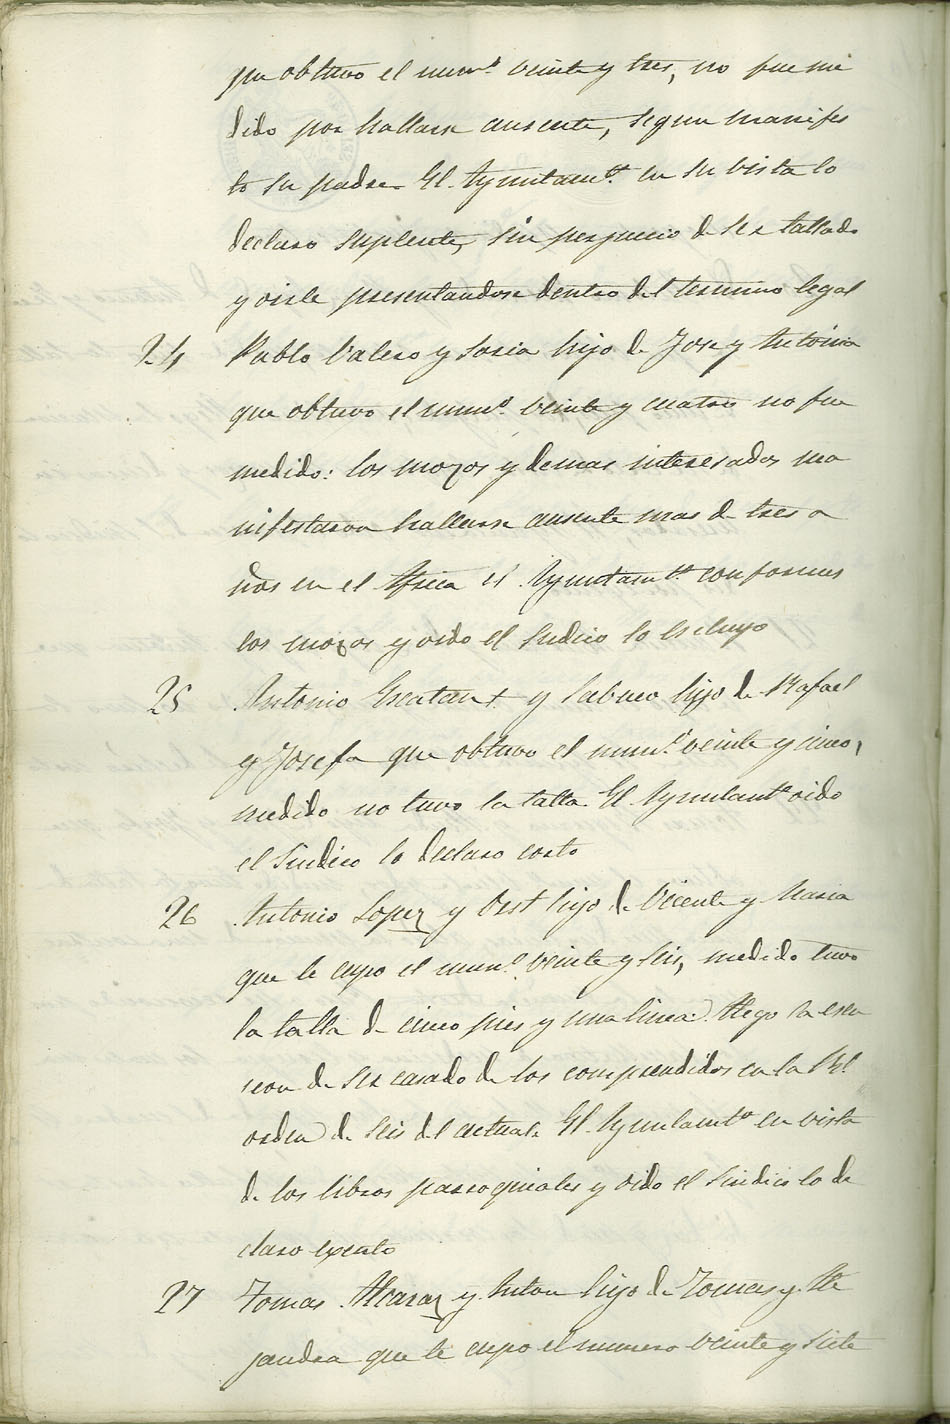 que obtuvo el num.º veinte y tres, no fue me
dido por hallarse ausente, segun manifes
to su padre. El Ayuntam.to en su vista lo
declaro suplente, sin perjuicio de ser tallado
y oirle presentandose dentro del termino legal
24 Pablo Valero y Soria hijo de Jose y Antonia
que obtuvo el num.º veinte y cuatro no fue
medido: los mozos y demas interesados ma
nifestaron hallarse ausente mas de tres a
ños en el Africa el Ayuntam.to conformes
los mozos y oido el Sindico lo escluyo
25 Antonio y Sabuco hijo de Rafael
y Josefa que obtuvo el num.º veinte y cinco,
medido no tuvo la talla. El Ayuntam.to oido
el Sindico lo declaro corto
26 Antonio Lopez y hijo de Vicente y Maria
que le cupo el num.º veinte y seis, medido tuvo
la talla de cinco pies y una linea. Alego la esen
cion de ser casado de los comprendidos en la Rl
orden de seis del actual. El Ayuntam.to en vista
de los libros parroquiales y oido el Sindico lo de
claro exento
27 Tomas Alcaraz y Anton hijo de Tomas y Ale
jandra que le cupo el numero veinte y siete